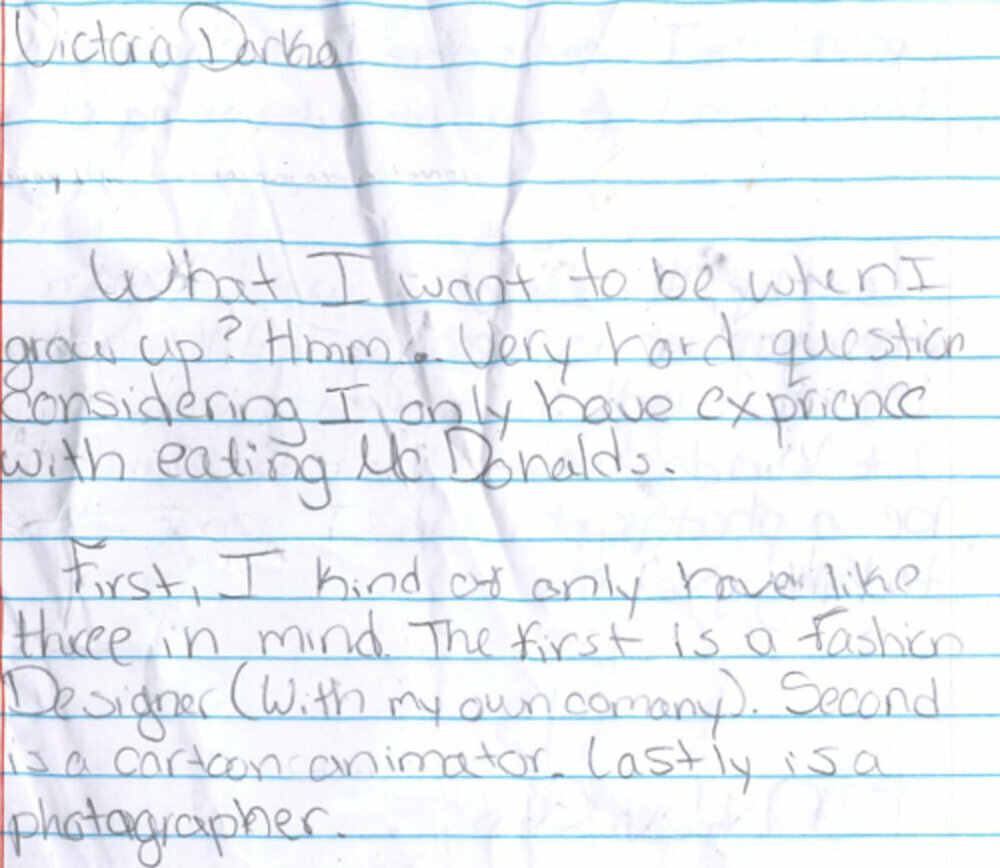 Victoria Darko
What I want to be when I
grow up? Hmm... Very hard question
considering I only have exprience
with eating McDonalds.
First, I kind of only have like
three in mind. The first is a Fashion
Designer (With my own comany). Second
is a cartoon animator. Lastly is a
photagrapher.